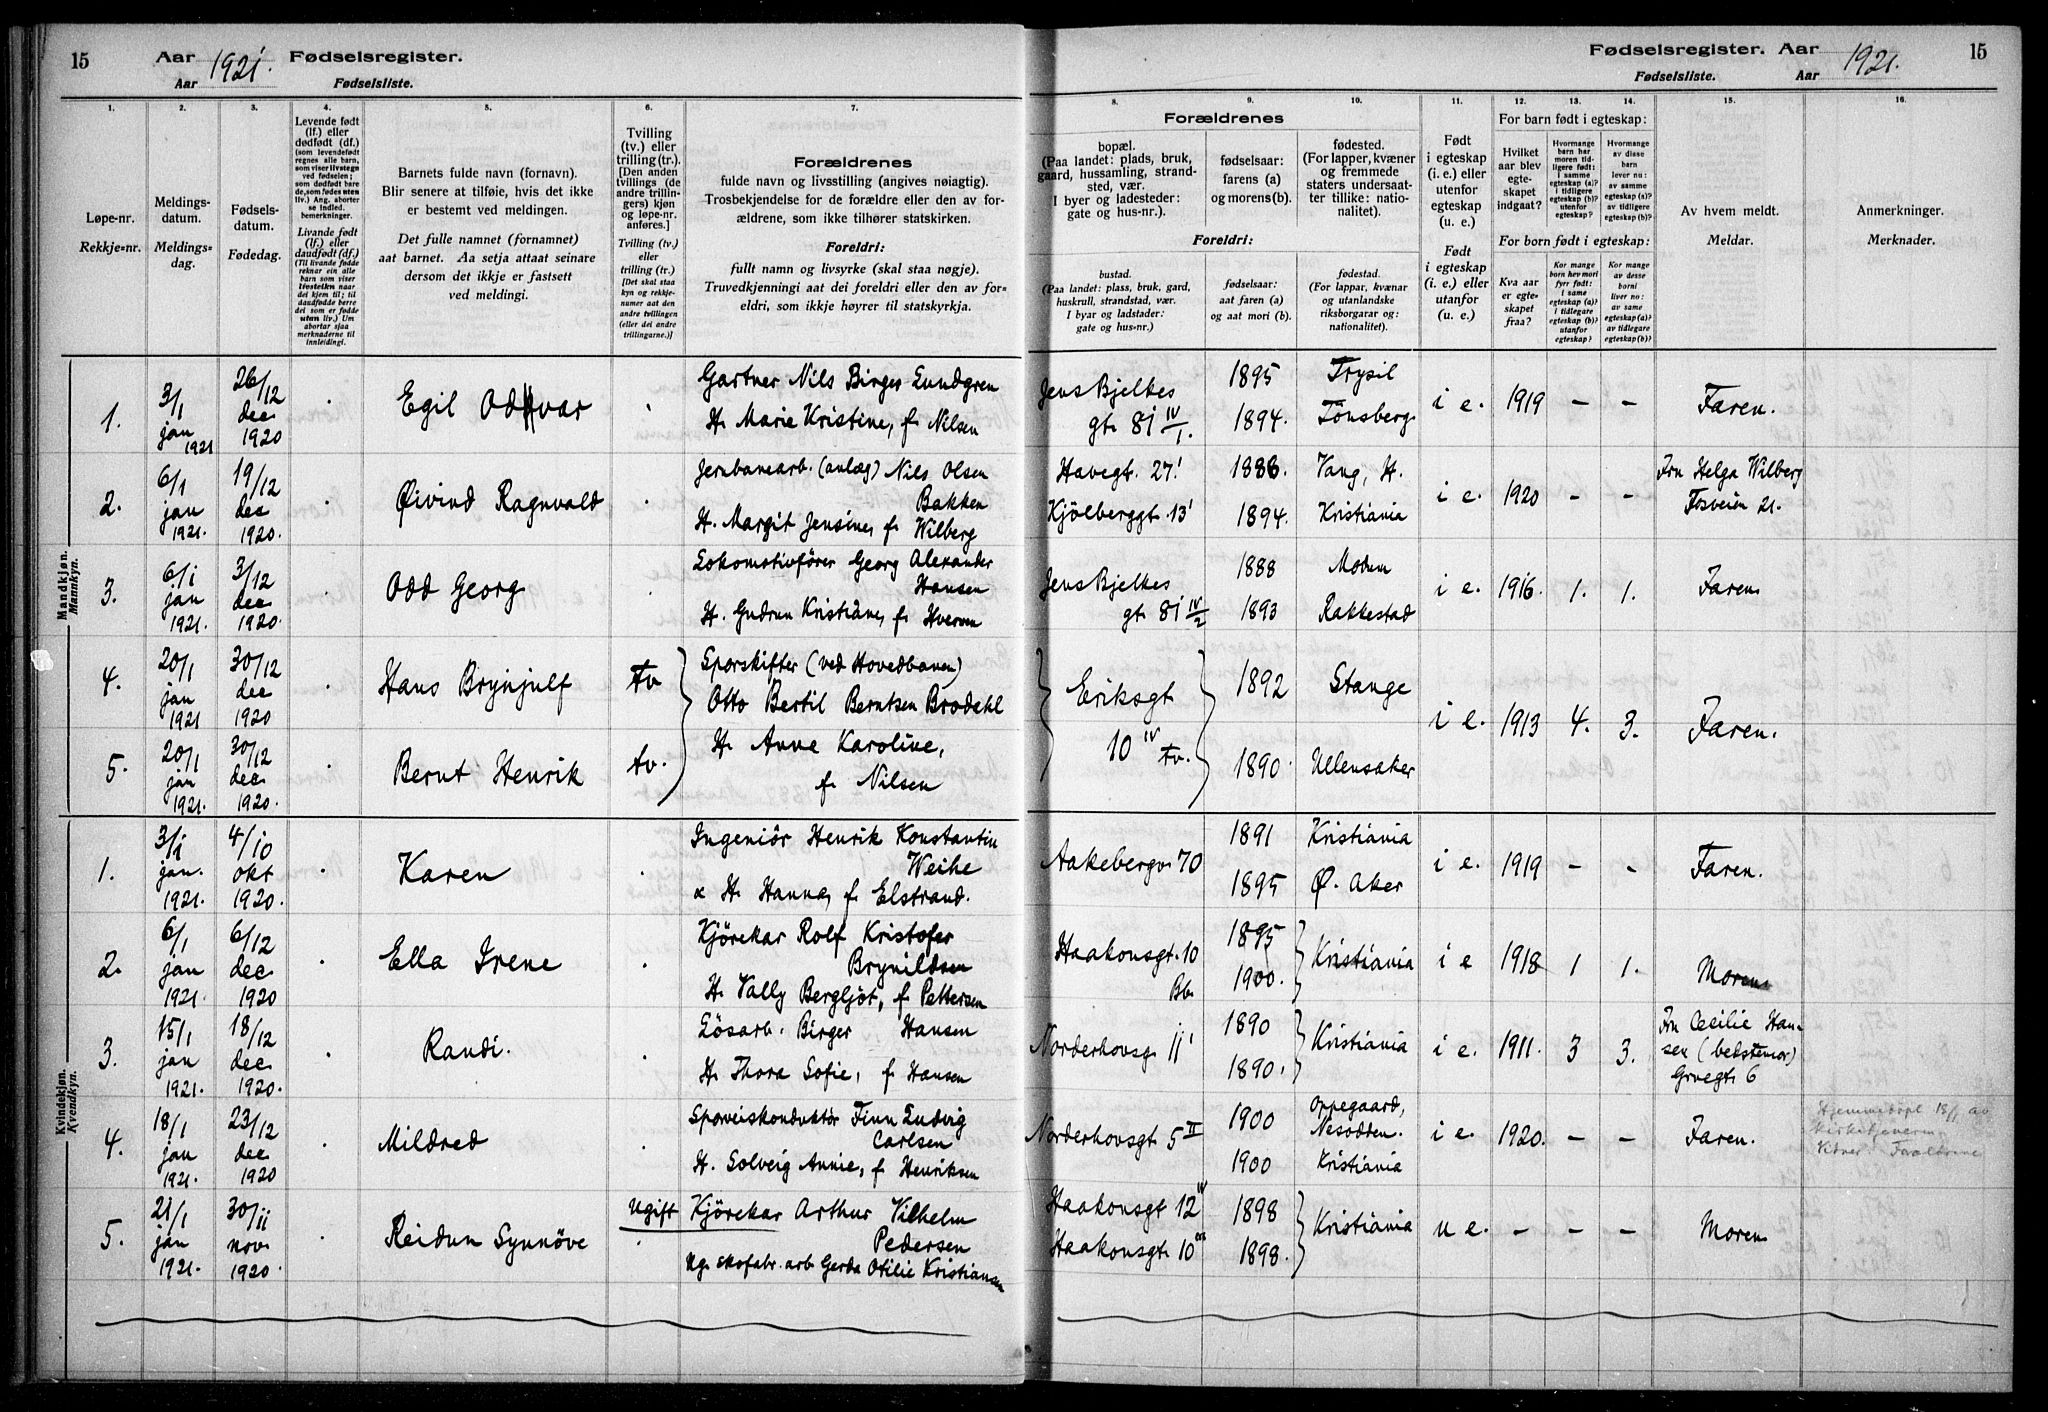 15 Aar 1921. Fødselsregister.
Aar Fødselsliste.
Fødselsregister. Aar 1921. 15
Fødselsliste. Aar
1. 2. 3. 4. 5. 6. 7.
Løpe-nr.
Rekkje-nr.
Meldings-
datum.
Meldings-
dag.
Fødsels-
datum.
Fødedag.
Levende født
(lf.) eller
dødfødt (df.)
(som levendefødt
regnes alle barn,
som viser livstegn
ved fødselen;
som dødfødt bare
de, som fødes uten
liv.) Ang. aborter
se indled.
bemerkninger.
Livande født
(lf.) eller
daudfødt (df.)
(Til livande fødde
reknar ein alle
barn som viser
livsteikn naar
dei kjem til; til
daudfødde berre
dei som er fødde
utan liv.) Um
abortar sjaa
merknaderne til
innleidingi.
Barnets fulde navn (fornavn).
Blir senere at tilføie, hvis det ikke
er bestemt ved meldingen.
Det fulle namnet (fornamnet)
aat barnet. Aa setja attaat seinare
dersom det ikkje er fastsett
ved meldingi.
Tvilling
(tv.) eller
trilling (tr.).
[Den anden
tvillings (de
andre trillin-
gers) kjøn
og løpe-nr.
anføres.]
Tvilling (tv.)
eller
trilling (tr.)
[Det skal staa
kyn og rekkje-
numer aat den
andre tvillingen
(eller dei andre
trillingarne.)]
Forældrenes
fulde navn og livsstilling (angives nøiagtig).
Trosbekjendelse for de forældre eller den av for-
ældrene, som ikke tilhører statskirken.
Foreldri:
fullt namn og livsyrke (skal staa nøgje).
Truvedkjenningi aat dei foreldri eller den av for-
eldri, som ikkje høyrer til statskyrkja.
8. 9. 10. 11. 12. 13. 14. 15. 16.
Forældrenes
bopæl.
(Paa landet: plads, bruk,
gaard, hussamling, strand-
sted, vær.
I byer og ladesteder:
gate og hus-nr.).
fødselsaar:
farens (a)
og morens (b).
fødested.
(For lapper, kvæner
og fremmede
staters undersaat-
ter tillike: natio-
nalitet).
Foreldri:
bustad.
(Paa landet: plass, bruk, gard,
huskrull, strandstad, vær.
I byar og ladstader:
gate og hus-nr.)
fødselsaar:
aat faren (a)
og aat mori (b).
fødestad.
(For lappar, kvænar
og utanlandske
riksborgarar og:
nationalitet).
Født
i egteskap
(i. e.) eller
utenfor
egteskap
(u. e.)
Født
i egteskap
(i. e.) eller
utanfor
(u. e.)
For barn født i egteskap:
Hvilket
aar blev
egte-
skapet
indgaat?
Hvormange
barn har
moren tid-
ligere født:
i samme
egteskap (a)?
i tidligere
egteskap (b)?
utenfor
egteskap?
Hvormange
av disse
barn
lever nu:
av samme
egteskap (a)?
av tidligere
egteskap (b)?
For born født i egteskap:
Kva aar
er egte-
skapet
fraa?
Kor mange
born hev mori
fyrr født:
i same
egteskap (a)?
i tidlegare
egteskap (b)?
utanfor
egteskap?
Kor mange
av desse
borni
liver no:
av same
egteskap (a)?
av tidlegare
egteskap (b)?
Av hvem meldt.
Meldar.
Anmerkninger.
Merknader.
Mandkjøn.
Mannkyn.
1. 3/1 jan 1921 26/12 dec 1920 Egil Oddvar
Gartner Nils Birger Lundgren
H. Marie Kristine, f. Nilsen
Jens Bjelkes gt. 81 IV/1. 1895 1894. Trysil Tönsberg i e. 1919 – – Faren.
2. 6/1 jan 1921. 19/12 dec 1920. Øivind Ragnvald
Jernbanearb. (anlæg) Nils Olsen Bakken
H. Margit Jensine, f. Wilberg
Havegt. 27 Kjölberggt. 13 1886. 1894. Vang, H. Kristiania i e. 1920 – – Frn Helga Wilberg
Tosveien 21.
3. 6/1 jan 1921. 3/12 dec 1920. Odd Georg
Lokomotivförer Georg Alexander Hansen
H. Gudrun Kristiane, f. Hverven
Jens Bjelkes gt. 81 IV/2 1888 1893 Modum Rakkestad i e. 1916. 1. 1. Faren
4. 20/1 jan 1921 30/12 dec 1920 Hans Brynjulf tv
Sporskifter (ved Hovedbanen)
Otto Bertil Berntsen Brodahl
Eriksgt 10 IV tv. 1892 Stange i e. 1913 4. 3. Faren.
5. 20/1 jan 1921. 30/12 dec 1920. Bernt Henrik tv.
H. Anne Karoline,
f. Nilsen
1890. Ullensaker
Kvindekjøn.
Kvendkyn.
1. 3/1 jan. 1921. 4/10 okt 1920. Karen
Ingeniör Henrik Konstantin Weihe
H. Hanna, f. Elstrand.
Aakebergv. 70 1891 1895 Kristiania Ø. Aker i e. 1919 – – Faren.
2. 6/1 jan 1921. 6/12 dec 1920 Ella Irene
Kjörekar Rolf Kristofer Brynildsen
H. Vally Bergljot, f. Pettersen
Haakonsgt. 10 Bb. 1895 1900. Kristiania i e 1918 1 1. Moren
3. 15/1 jan 1921. 18/12 dec 1920. Randi.
Lösarb. Birger Hansen
H. Thora Sofie, f. Hansen
Norderhovsg. 11 1890 1890. Kristiania i e. 1911. 3 3. Frn Cecilie Han-
sen (bedstemor)
6
4. 18/1 jan 1921. 23/12 dec 1920 Mildred
Sporveiskonduktör Finn Ludvig Carlsen
H. Solveig Annie, f. Henriksen
Norderhovsgt. 5 II 1900 1900 Oppegaard, Nesodden. Kristiania i e. 1920. – – Faren.
Hjemmedöpt av
5. 21/1 jan 1921. 30/11 nov. 1920. Reidun Synnöve
Ugift Kjörekar Arthur Vilhelm Pedersen
Ug. skofabr. arb. Gerda Otilie Kristiansen
Haakonsgt 12 IV Haakonsgt. 10 1898 1898. Kristiania u e. – – – Moren